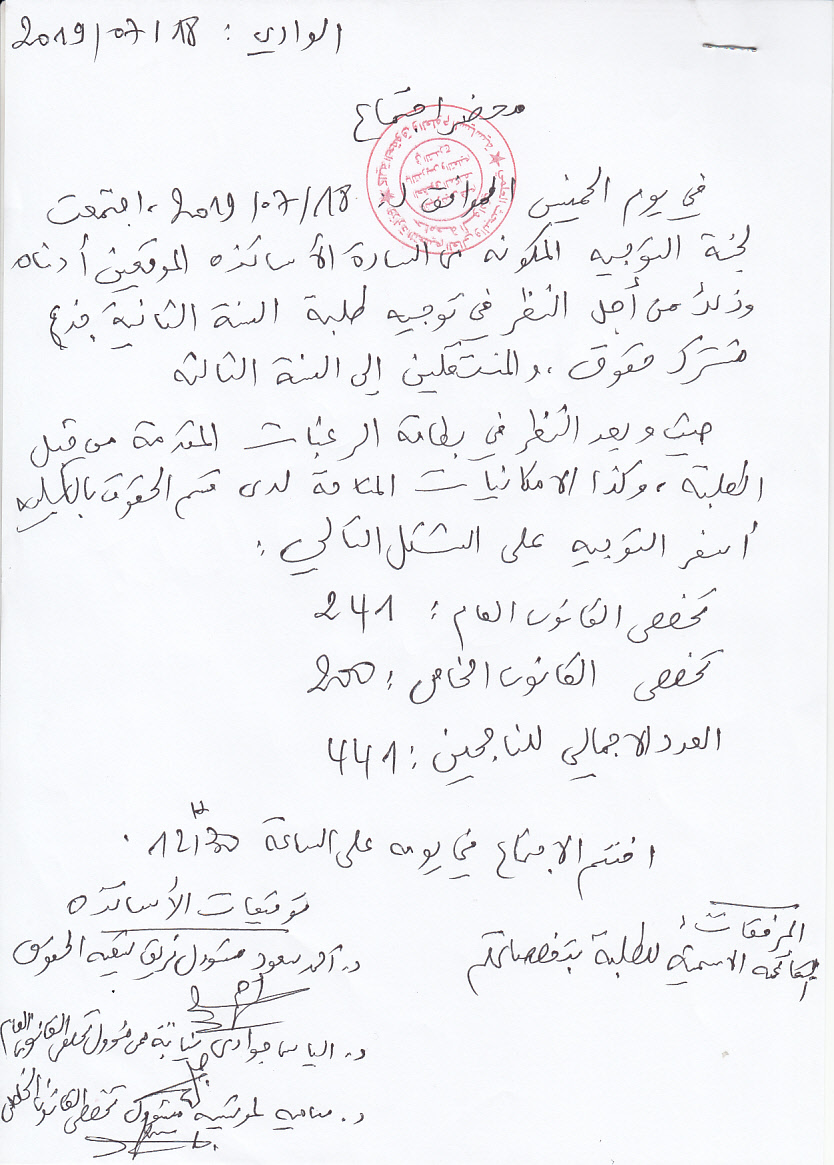 الوادي : 2019/07/18
محضر اجتماع
في يوم الخميس الموافق لـ: 2019/07/18، اجتمعت
لجنة التوجيه المكونه من السادة الأساتذه الموقعين أدناه
وذلك من أجل النظر في توجيه طلبة السنة الثانية جذع
مشترك حقوق، والمنتقلين إلى السنة الثالثه
حيث وبعد النظر في بطاقة الرغبات المقدمة من قبل
الطلبة، وكذا الامكانيات المتاحة لدى قسم الحقوق بالكليه
أسفر التوجيه على الشكل التالي :
تخصص القانون العام : 241
تخصص القانون الخاص : 200
العدد الاجمالي للناجحين : 441
اختتم الاجتماع في يومه على الساعة 12h30 .
توقيعات الأساتذه
المرفقات :
القائمه الاسمية للطلبة بتخصصاتهم
د. أحمد سعود مسؤول فريق شعبه الحقوق
د. الياس جوادي نيابة عن مسؤول تخصص القانون العام
د. ساميه مسؤول تخصص القانون الخاص